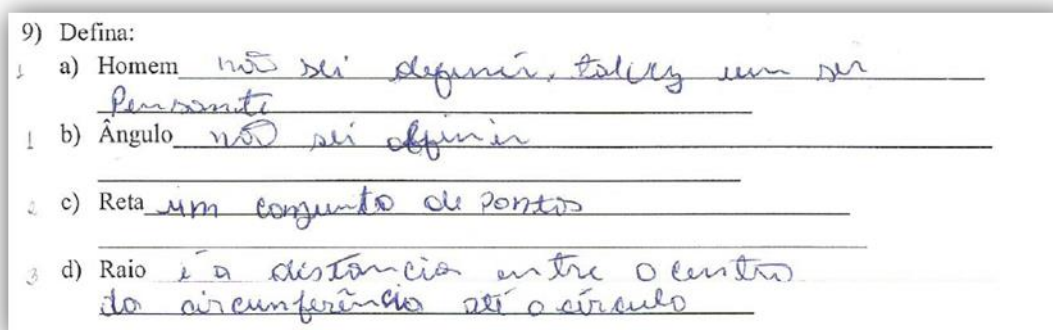 9) Defina:
1 a) Homem não sei definir, talvez um ser
Pensante
1 b) Ângulo não sei definir
2 c) Reta um conjunto de pontos
3 d) Raio é a distância entre o centro
da circunferência até o círculo